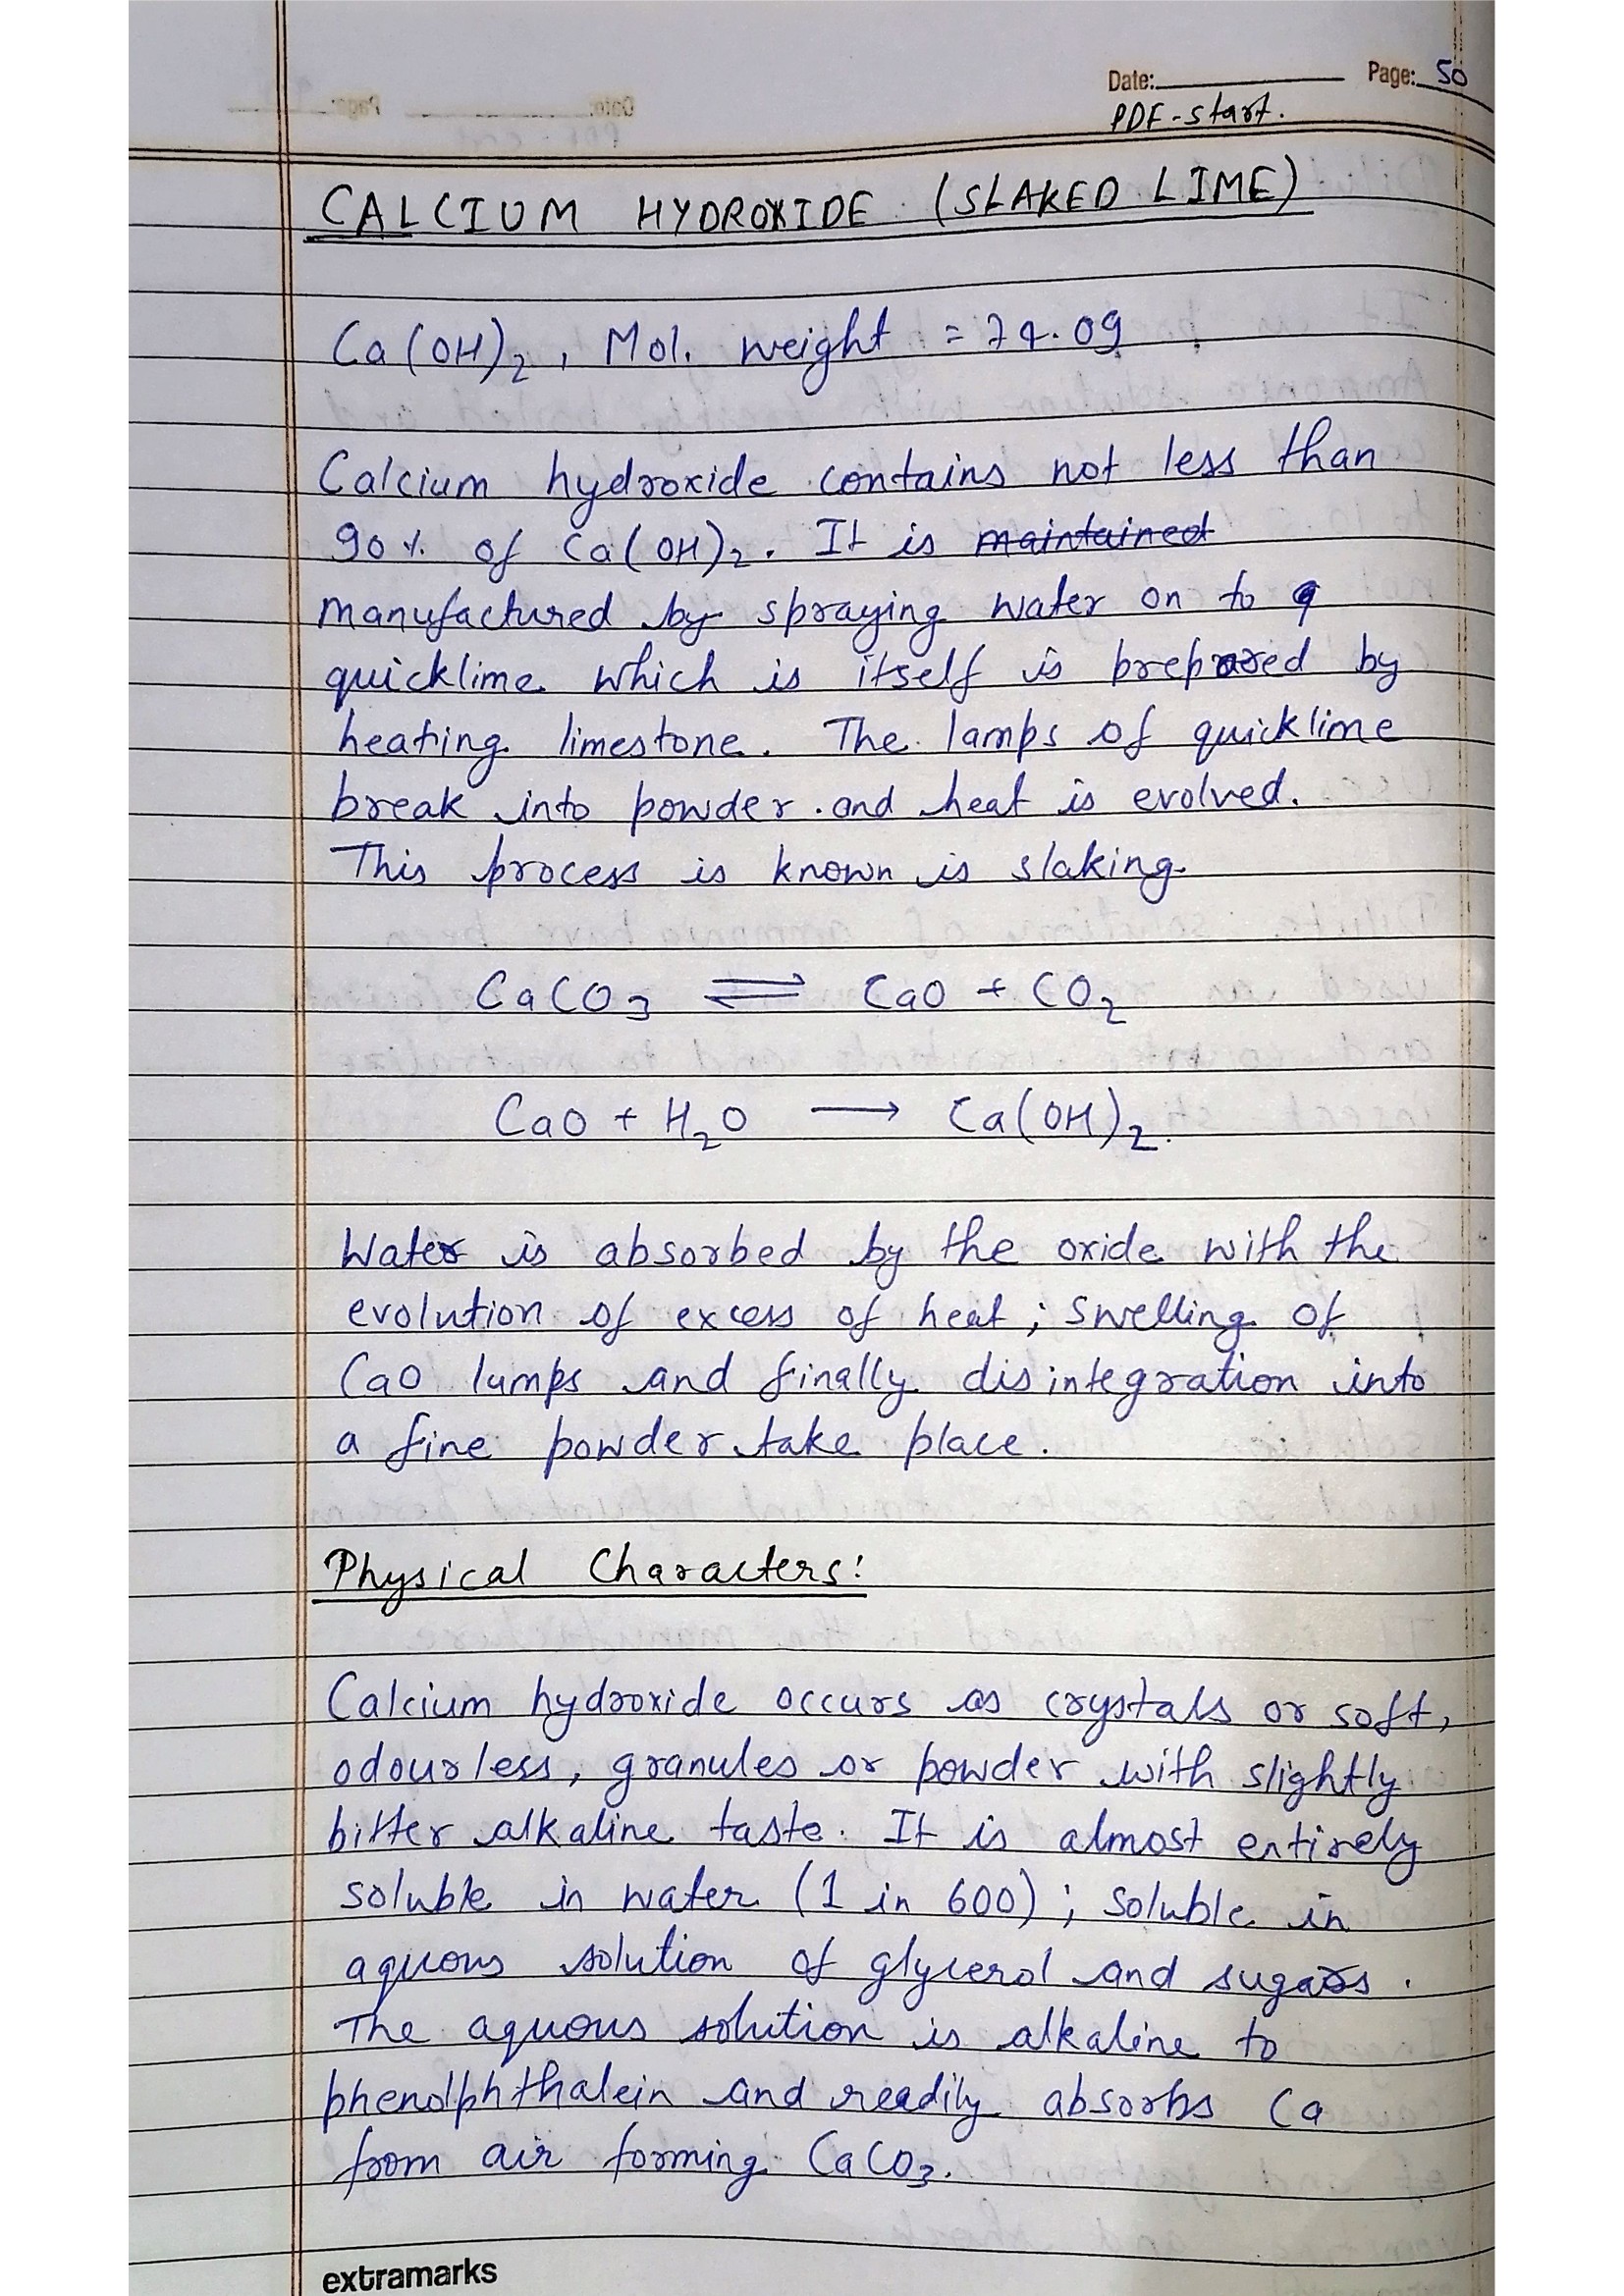 Date: Page: 50
PDF-start.
CALCIUM HYDROXIDE (SLAKED LIME)
Ca(OH)₂, Mol. weight = 74.09
Calcium hydroxide contains not less than
90% of Ca(OH)₂. It is maintained
manufactured by spraying water on to q
quicklime which is itself is prepared by
heating limestone. The lamps of quicklime
break into powder and heat is evolved.
This process is known is slaking.
CaCO₃ ⇌ CaO + CO₂
CaO + H₂O → Ca(OH)₂.
Water is absorbed by the oxide with the
evolution of excess of heat; swelling of
CaO lumps and finally disintegration into
a fine powder take place.
Physical Characters:
Calcium hydroxide occurs as crystals or soft,
odourless, granules or powder with slightly
bitter alkaline taste. It is almost entirely
soluble in water (1 in 600); soluble in
aquous solution of glycerol and sugars.
The aquous solution is alkaline to
phenolphthalein and readily absorbs Ca
from air forming CaCO₃.
extramarks